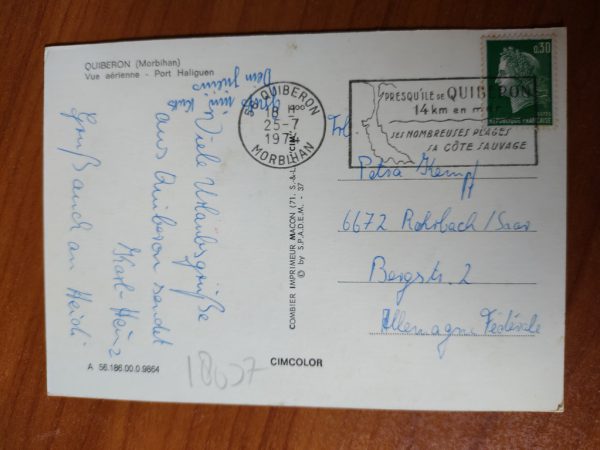 QUIBERON (Morbihan)
Vue aérienne - Port Haliguen
Viele Urlaubsgrüße
aus Quiberon sendet
Karl-Heinz
Gruß auch an Heidi
A 56.186.00.0.9864
18037
CIMCOLOR
COMBIER IMPRIMEUR MACON (71. S.-&-L.)
© by S.P.A.D.E.M. - 37
56 QUIBERON
18 H
25-7
1974
MORBIHAN
PRESQU'ILE DE QUIBERON
14 km en mer
SES NOMBREUSES PLAGES
SA CÔTE SAUVAGE
0,30
REPUBLIQUE FRANÇAISE
Petra Kempf
6672 Rohrbach/Saar
Bergstr. 2
Allemagne Fédérale